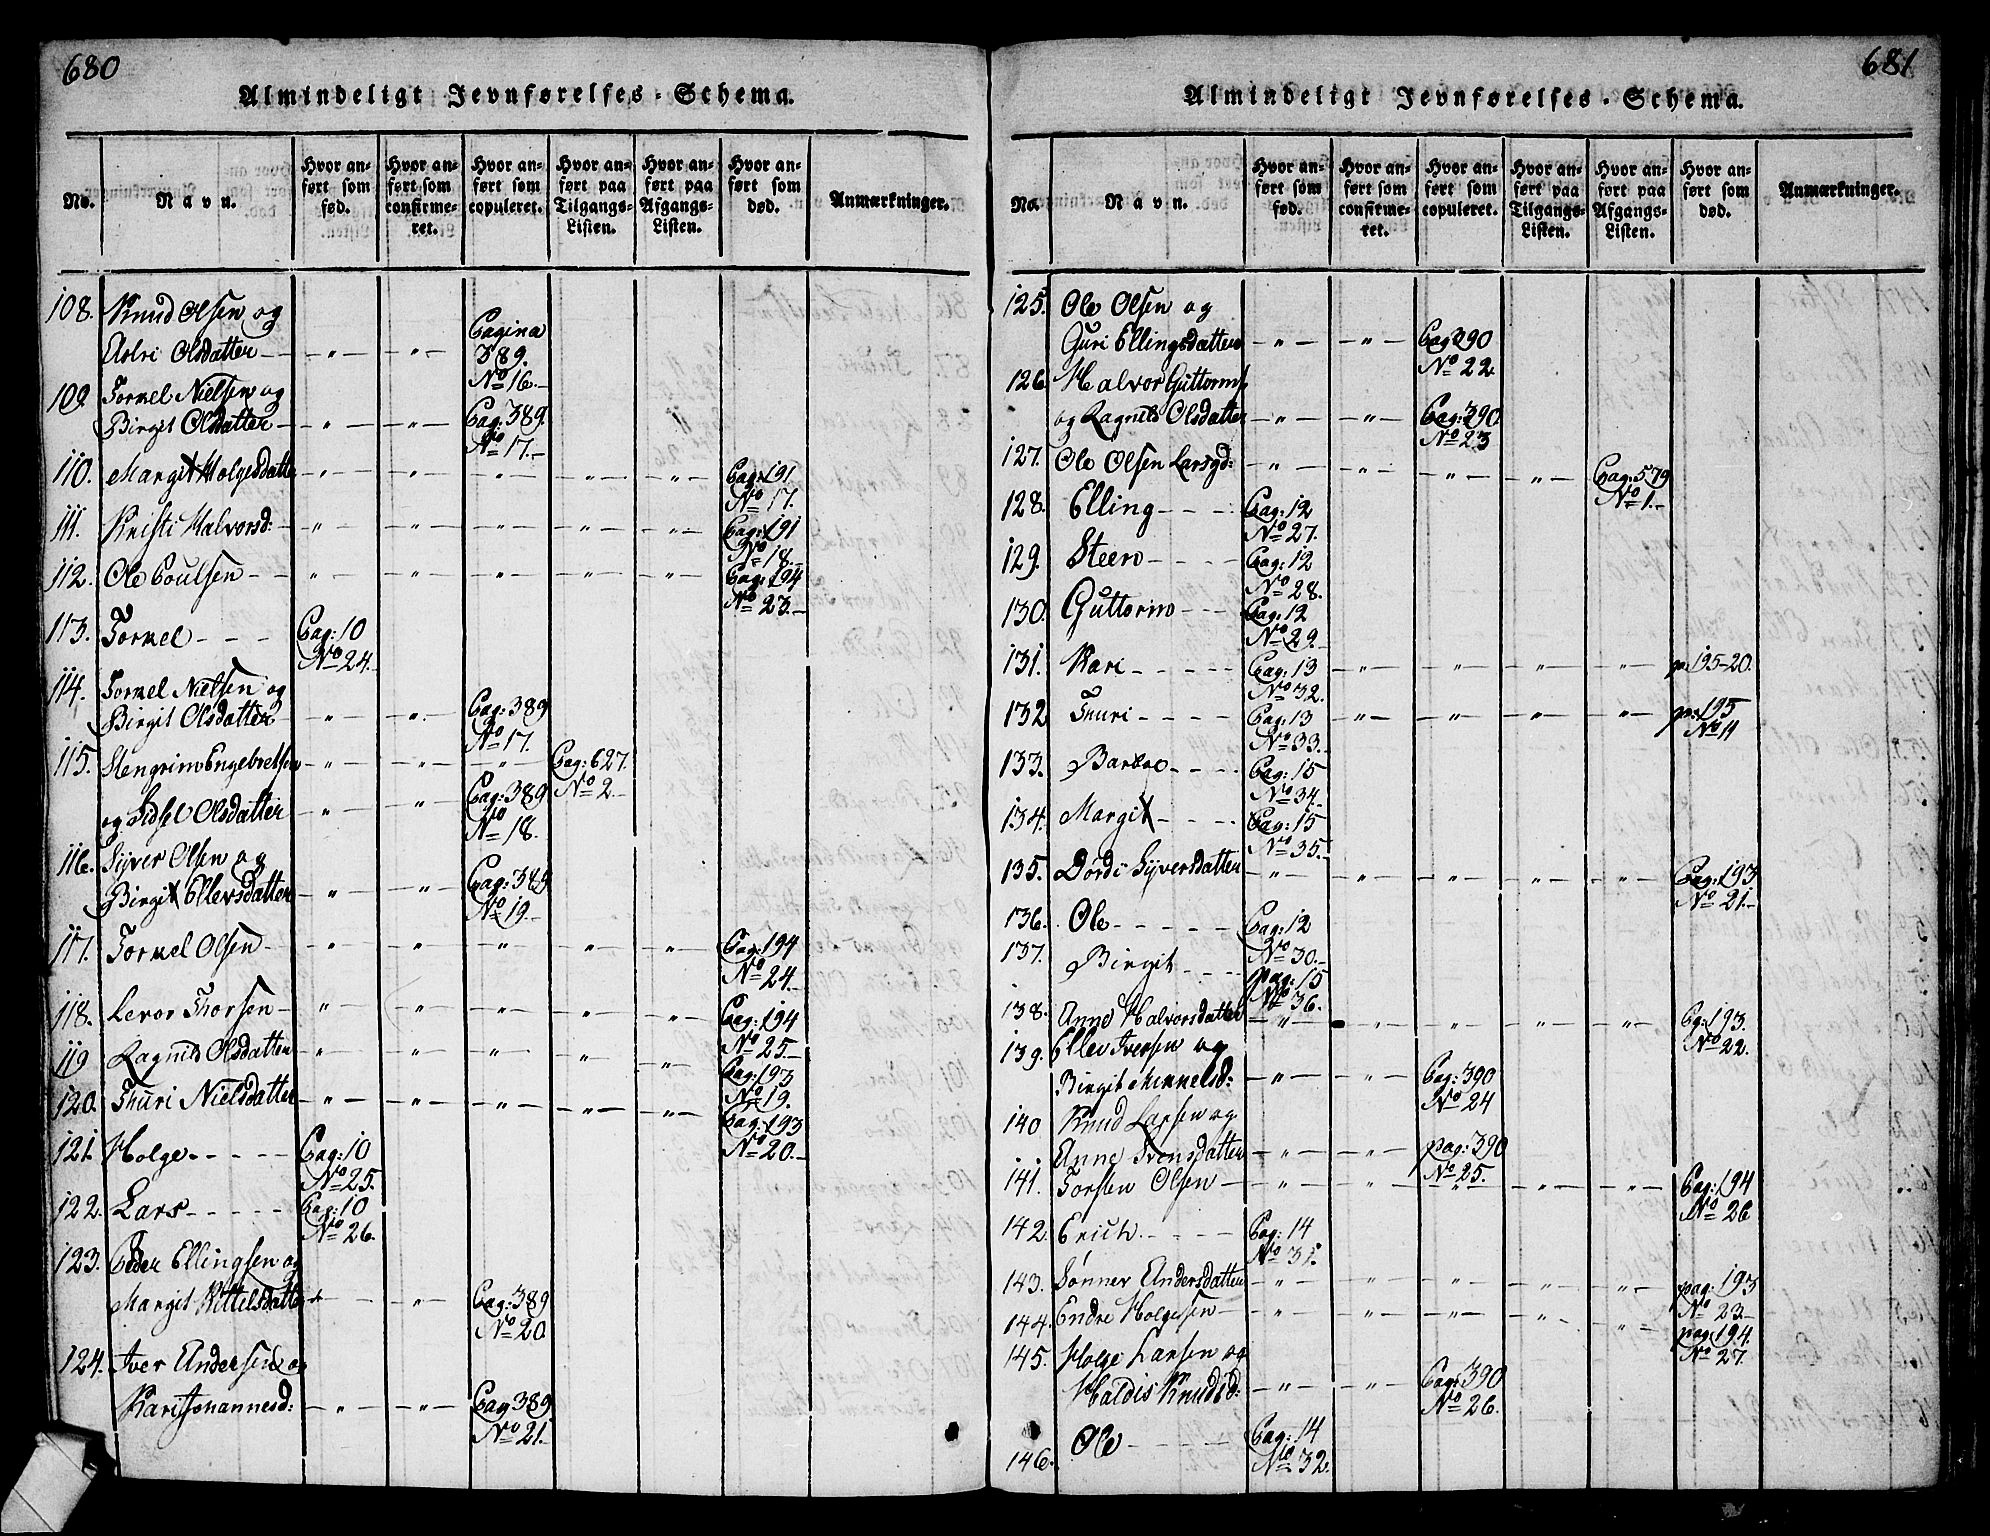 680
Almindeligt Jevnførelses-Schema.
No.
Navn.
Hvor an-
ført som
fød.
Hvor an-
ført som
confirme-
ret.
Hvor an-
ført som
copuleret.
Hvor an-
ført paa
Tilgangs-
Listen.
Hvor an-
ført paa
Afgangs-
Listen.
Hvor an-
ført som
død.
Anmærkninger.
108. Knud Olsen og
Astri Olsdatter - " - " - Pagina 389. No 16.
109. Tormel Nielsen og
Birgit Olsdatter - " - " - Pag: 389. No 17.
110. Margit Holgesdatter - " - " - " - " - " - Pag: 191 No 17.
111. Kristi Halvorsd: - " - " - " - " - " - Pag: 191 No 18.
112. Ole Poulsen - " - " - " - " - " - Pag: 194 No 23.
113. Tormel - - - Pag: 10 No 24.
114. Tormel Nielsen og
Birgit Olsdatter - " - " - Pag: 389 No 17.
115. Stengrim Engebretsen - " - " - " - Pag: 627. No 2
og Sidsel Olsdatter - " - " - Pag: 389 No 18.
116. Syver Olsen og
Birgit Ellevsdatter - " - " - Pag: 389 No 19.
117. Tormel Olsen - " - " - " - " - " - Pag: 194 No 24.
118. Levor Thorsen - " - " - " - " - " - Pag: 194 No 25.
119 Ragnild Olsdatter - " - " - " - " - " - Pag: 193 No 19.
120. Thuri Nielsdatter - " - " - " - " - " - Pag: 193 No 20.
121. Holge - - - Pag: 10 No 25.
122. Lars - - - Pag: 10 No 26.
123. Peder Ellingsen og
Margit Kittelsdatter - " - Pag: 389 No 20
124. Iver Andersen og
Kari Johannesd: - " - " - Pag 389 No 21.
681
Almindeligt Jevnførelses-Schema.
No.
Navn.
Hvor an-
ført som
fød.
Hvor an-
ført som
confirme-
ret.
Hvor an-
ført som
copuleret.
Hvor an-
ført paa
Tilgangs-
Listen.
Hvor an-
ført paa
Afgangs-
Listen.
Hvor an-
ført som
død.
Anmærkninger.
125. Ole Olsen og
Guri Ellingsdatter - " - " - Pag 390 No 22.
126. Halvor Guttorms
og Ragnild Olsdatter - " - " - Pag: 390 No 23
127. Ole Olsen Larsgd: - " - " - " - " - Pag: 579 No 1.
128. Elling - - - Pag: 12 No 27.
129. Steen - - - Pag: 12 No 28.
130. Guttorm - - - Pag: 12 No 29.
131. Kari - - - Pag: 13 No 32. - " - " - " - " - pa: 195-20.
132 Thuri - - - Pag: 13 No 33. - " - " - " - " - pa: 195 No 11
133. Barbro - - - Pag: 15 No 34.
134. Margit - - - Pag: 15 No 35.
135. Dordi Syversdatter - " - " - " - " - " - Pag: 193 No 21.
136. Ole - - - Pag: 12 No 30.
137. Birgit - - - pag: 15 No 36.
138. Anne Halvorsdatter - " - " - " - " - " - Pg: 193. No 22.
139. Ellev Iversen og
Birgit Mikkelsd: - " - " - Pag: 390 No 24
140 Knud Larsen og
Anne Tronsdatter - " - " - pag: 390 No 25.
141. Torsten Olsen - " - " - " - " - " - Pag: 194 No 26
142. Erich - - - Pag: 14 No 31.
143. Sønnev Andersdatter - " - " - " - " - " - pag: 193 No 23.
144. Endre Holgesen - " - " - " - " - " - pag 194. No 27.
145. Holge Larsen og
Haldis Knudsd: - " - " - Pag: 390 No 26.
146. Ole - - - Pag: 14 No 32.